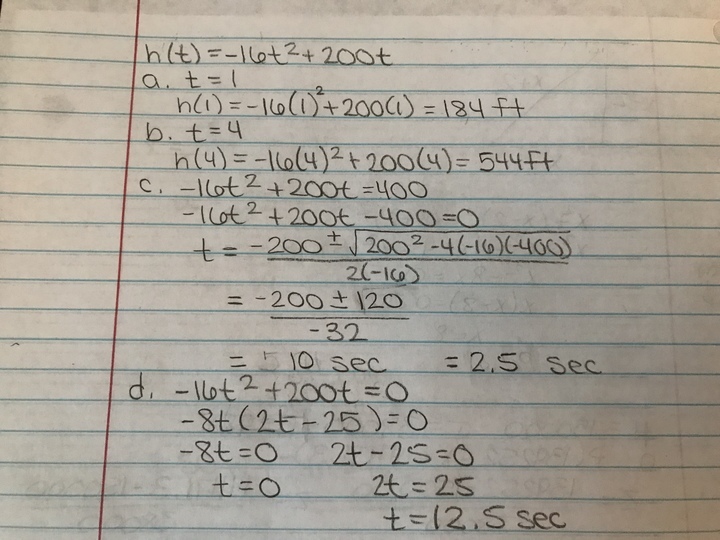 h(t)=-16t²+200t
a. t=1
h(1)=-16(1)²+200(1)=184ft
b. t=4
h(4)=-16(4)²+200(4)=544ft
c. -16t²+200t=400
-16t²+200t-400=0
t = -200±√200²-4(-16)(-400)
2(-16)
= -200±120
-32
= 10 sec =2.5 sec
d. -16t²+200t=0
-8t(2t-25)=0
-8t=0 2t-25=0
t=0 2t=25
t=12.5 sec